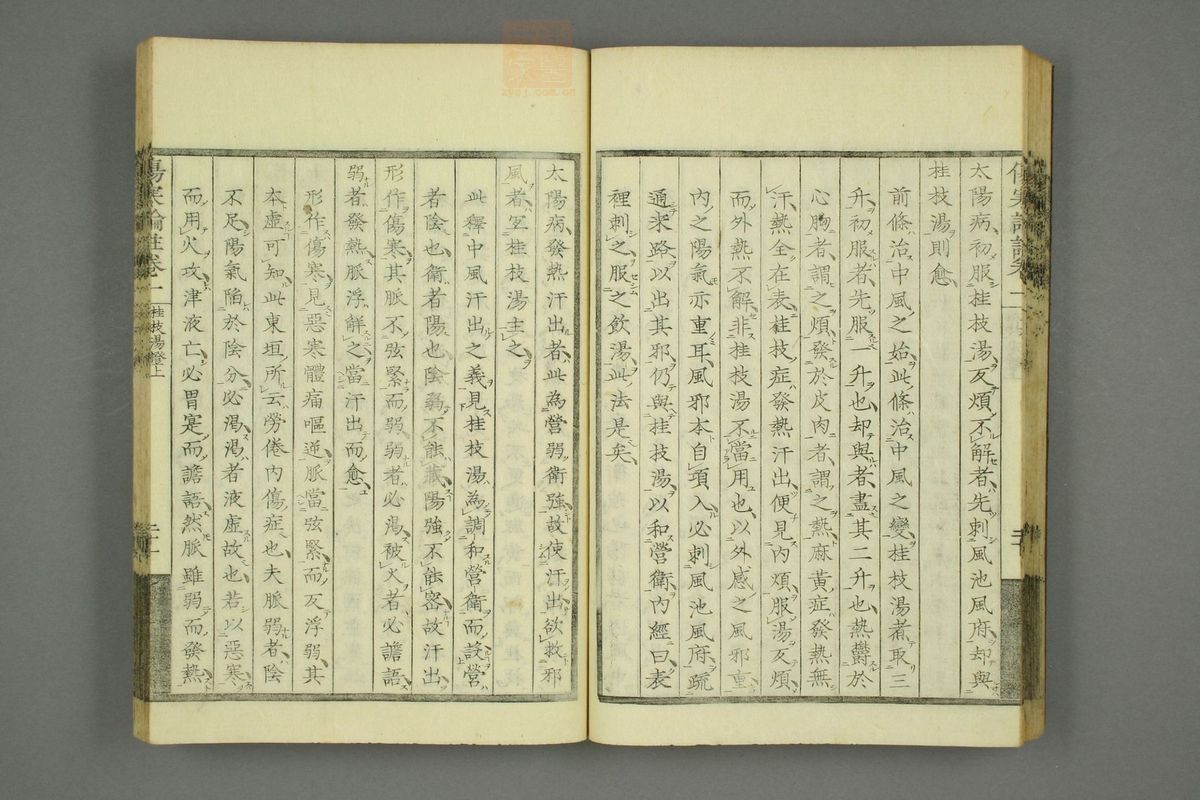 太陽病初服桂枝湯反煩不解者先刺風池風府却與
桂枝湯則愈
前條治中風之始此條治中風之變桂枝湯煮取三
升初服者先服一升也却與者盡其二升也熱欝於
心胸者謂之煩發於皮肉者謂之熱麻黃症發熱無
汗熱全在表桂枝症發熱汗出便見內煩服湯反煩
而外熱不解非桂枝湯不當用也以外感之風邪重
內之陽氣亦重耳風邪本自項入必刺風池風府疏
通來路以出其邪仍與桂枝湯以和營衛內經曰表
裡刺之服之飲湯此法是矣
太陽病發熱汗出者此為營弱衛強故使汗出欲救邪
風者宜桂枝湯主之
此釋中風汗出之義見桂枝湯為調和營衛而設營
者陰也衛者陽也陰弱不能藏陽強不能密故汗出
形作傷寒其脈不弦緊而弱弱者必渴被火者必譫語
弱者發熱脈浮解之當汗出而愈
形作傷寒見惡寒體痛嘔逆脈當弦緊而反浮弱其
本虛可知此東垣所云勞倦內傷症也夫脈弱者陰
不足陽氣陷於陰分必渴渴者液虛故也若以惡寒
而用火攻津液亡必胃寔而譫語然脈雖弱而發熱
傷寒論註卷一
桂枝湯證上
二十一
zysj.com.cn